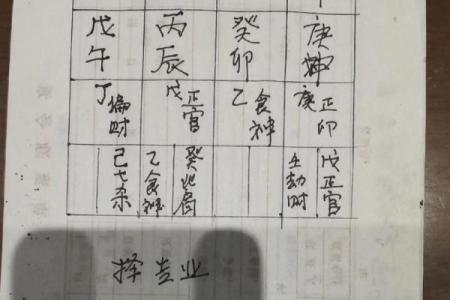 戊午 丙辰 癸卯 庚申
丁偏财 戊正官 乙食神 庚正印
己七杀 乙食神 癸比肩 壬劫财 戊正官
择专业